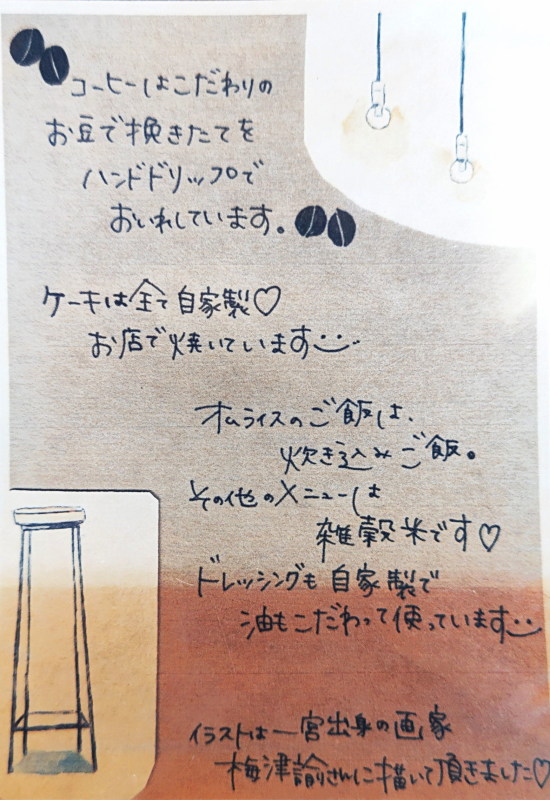 コーヒーはこだわりの
お豆で挽きたてを
ハンドドリップで
おいれしています。
ケーキは全て自家製♡
お店で焼いています
オムライスのご飯は、
炊き込みご飯。
その他のメニューは
雑穀米です♡
ドレッシングも自家製で
油もこだわって使っています
イラストは一宮出身の画家
梅津諭さんに描いて頂きました♡